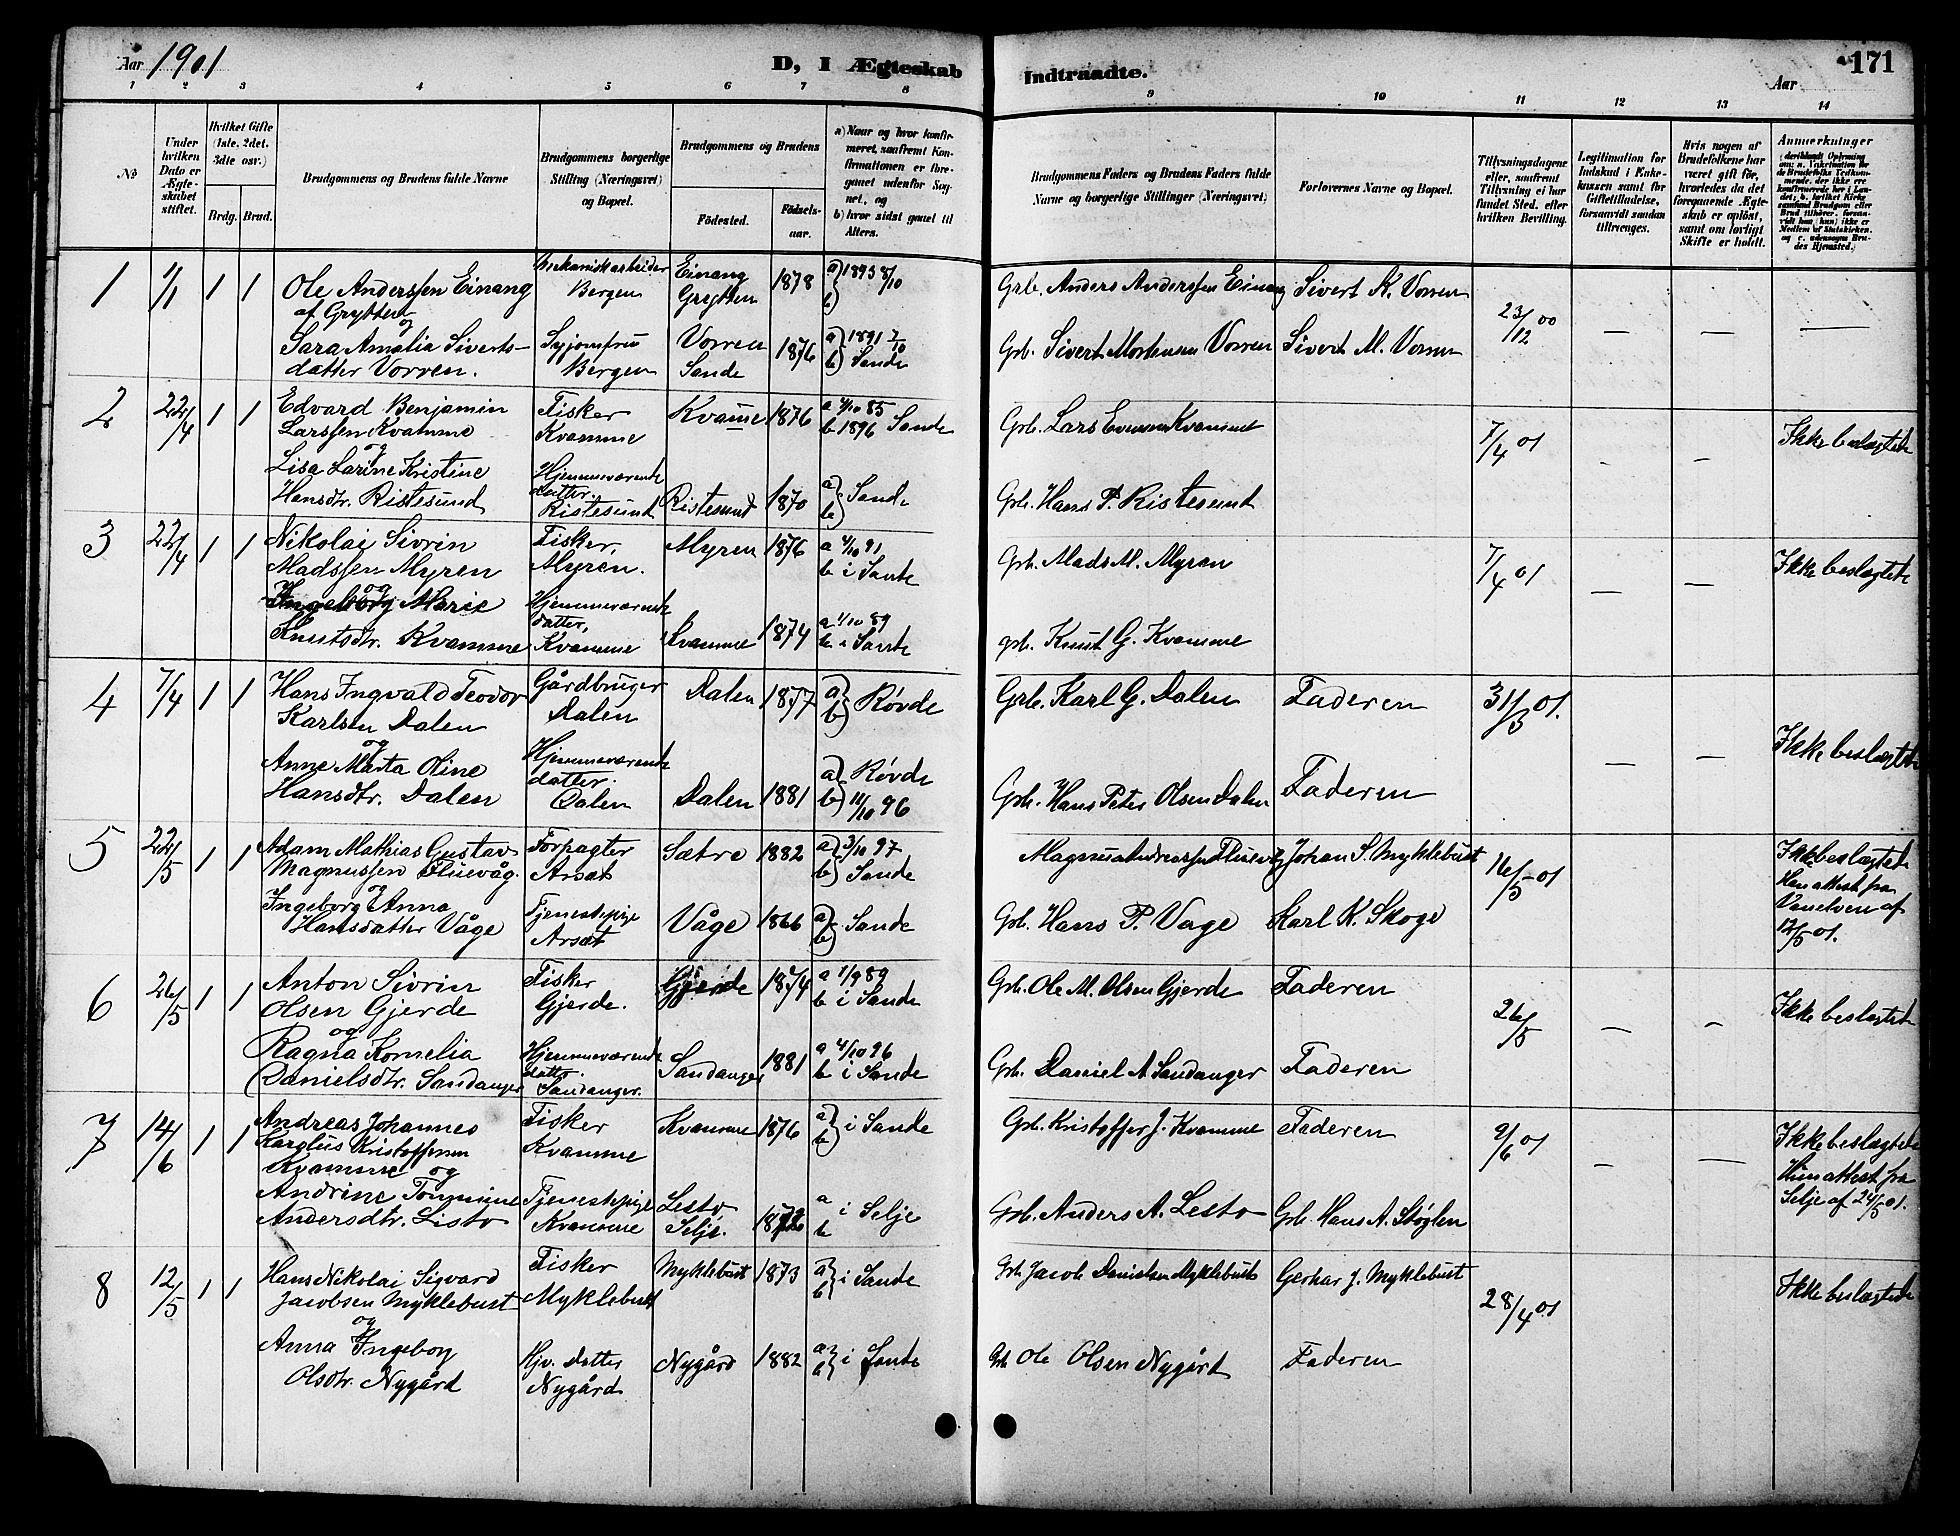 Aar 1901
D, I Ægteskab
Indtraadte.
Aar
171
1 2 3 4 5 6 7 8 9 10 11 12 13 14
No
Under hvilken Dato er Ægteskabet stiftet.
Hvilket Gifte (1ste, 2det, 3die osv.)
Brdg. Brud.
Brudgommens og Brudens fulde Navne
Brudgommens borgerlige Stilling (Næringsvei) og Bopæl.
Brudgommens og Brudens
Fødested.
Fødselsaar.
a) Naar og hvor konfirmeret, saafremt Konfirmationen er foregaaet udenfor Sognet, og
b) hvor sidst gaaet til Alters.
Brudgommens Faders og Brudens Faders fulde Navne og borgerlige Stillinger (Næringsvei)
Forlovernes Navne og Bopæl.
Tillysningsdagene eller, saafremt Tillysning ei har fundet Sted, efter hvilken Bevilling.
Legitimation for Indskud i Enkekassen samt for Giftetilladelse, forsaavidt saadan tiltrænges.
Hvis nogen af Brudefolkene har været gift før, hvorledes da det foregaaende Ægteskab er opløst, samt om lovligt Skifte er holdt.
Anmerkninger
1 1/1 1 1
Ole Anderssen Einang
af Grytten
og
Sara Amalia Siverts-
datter Vorren.
Mekanisk arbeider
Bergen
Syjomfru
Bergen
Einang
Grytten
Vorren
Sande
1878
1876
a) 1893 8/10
b)
a) 1891 2/10
b) Sande
Grb. Anders Anderssen Einang
Grb. Sivert Mortensen Vorren
Sivert K. Vorren
Sivert M. Vorren
23/12 00
— — —
2 22/4 1 1
Edvard Benjamin
Larssen Kvamme
og
Lisa Larine Kristine
Hansdtr. Ristesund
Fisker
Kvamme
Hjemmeværende
datter.
Ristesund
Kvamme
Ristesund
1876
1870
a 4/10 85
b 1896 Sande
a)
b) Sande
Grb. Lars Evensen Kvamme
Grb. Hans P. Ristesund
7/4 01
- -
Ikke beslægtede
3 22/4 1 1
Nikolai Sivrin
Madssen Myren
og
Ingeborg Marie
Knutsdtr. Kvamme
Fisker,
Myren.
Hjemmeværende
datter,
Kvamme
Myren
Kvamme
1876
1874
a 4/10 91
b i Sande
a 1/10 89
b i Sande
Grb. Mads M. Myren
grb. Knut G. Kvamme
7/4 01
— —
Ikke beslægtede
4 7/4 1 1
Hans Ingvald Teodor
Karlsen Dalen
og
Anne Marta Oline
Hansdtr. Dalen
Gårdbruger
Dalen
Hjemmeværende
datter.
Dalen
Dalen
Dalen
1877
1881
a)
b) Røvde
a) Røvde
b) 11/10 96
Grb. Karl G. Dalen
Grb. Hans Peter Olsen Dalen
Faderen
Faderen
31/3 01.
— —
Ikke beslægtede
5 22/5 1 1
Adam Mathias Gustav
Magnussen Fluevåg.
og
Ingeborg Anna
Hansdatter Våge
Forpagter
Arsæt
Tjenestepige
Arsæt
Sætre
Våge
1882
1866
a) 3/10 97
b) Sande
a)
b) Sande
Magnus Andreassen Fluevåg
Grb. Hans P. Våge
Johan S. Myklebust
Karl K. Skoge
16/5 01
Ikke beslægtede
Han attest fra
Vanelven af
12/5 01.
6 26/5 1 1
Anton Sivrin
Olsen Gjerde
og
Ragna Kornelia
Danielsdtr. Sandanger
Fisker
Gjerde.
Hjemmeværende
datter.
Sandanger.
Gjerde
Sandanger
1874
1881
a 1/9 89
b i Sande
a 4/10 96
b i Sande
Grb. Ole M. Olsen Gjerde
Grb. Daniel A Sandanger
Faderen
Faderen
26/5
— —
Ikke beslægtede
7 14/6 1 1
Andreas Johannes
Kristoffersen
Kvamme og
Andrine
Andersdtr. Listo
Fisker
Kvamme
Tjenestepige
Kvamme
Kvamme
Lesto
Selje.
1876
a)
b) i Sande
a
b i Selje
Grb. Kristoffer J. Kvamme
Grb. Anders A. Lesto
Faderen
Grb. Hans A. Støylen
9/6 01
— —
Ikke beslægtede
Hun attest fra
Selje af 24/5 01.
8 12/5 1 1
Hans Nikolai Sigvard
Jacobsen Myklebust
og
Anna Ingeborg
Olsdtr. Nygård
Fisker
Myklebust
Hjv. Datter
Nygård
Myklebust
Nygård
1873
1882
a)
b) i Sande
a)
b) i Sande
Grb Jacob Danielsen Myklebust
Grb Ole Olsen Nygård
Gerhar J. Myklebust
Faderen
28/4 01
Ikke beslægtede